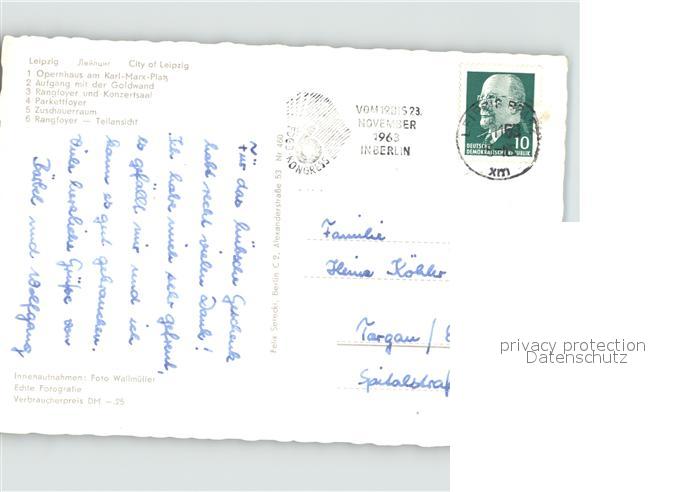 Leipzig Лейпциг City of Leipzig
1 Opernhaus am Karl-Marx-Platz
2 Aufgang mit der Goldwand
3 Rangfoyer und Konzertsaal
4 Parkettfoyer
5 Zuschauerraum
6 Rangfoyer — Teilansicht
Für das hübsche Geschenk
habt recht vielen Dank!
Ich habe mich sehr gefreut,
es gefällt mir und ich
kann es gut gebrauchen.
Viele herzliche Grüße von
Bärbel und Wolfgang
Innenaufnahmen: Foto Wallmüller
Echte Fotografie
Verbraucherpreis DM —.25
Felix Setecki, Berlin C 2, Alexanderstraße 53 Nr 460
KONGRESS
VOM 19.BIS 23.
NOVEMBER
1963
IN BERLIN
10
DEUTSCHE
DEMOKRATISCHE REPUBLIK
LEIPZIG
xm
Familie
Heinz Köhler
Torgau /
Spitalstraß
privacy protection
Datenschutz